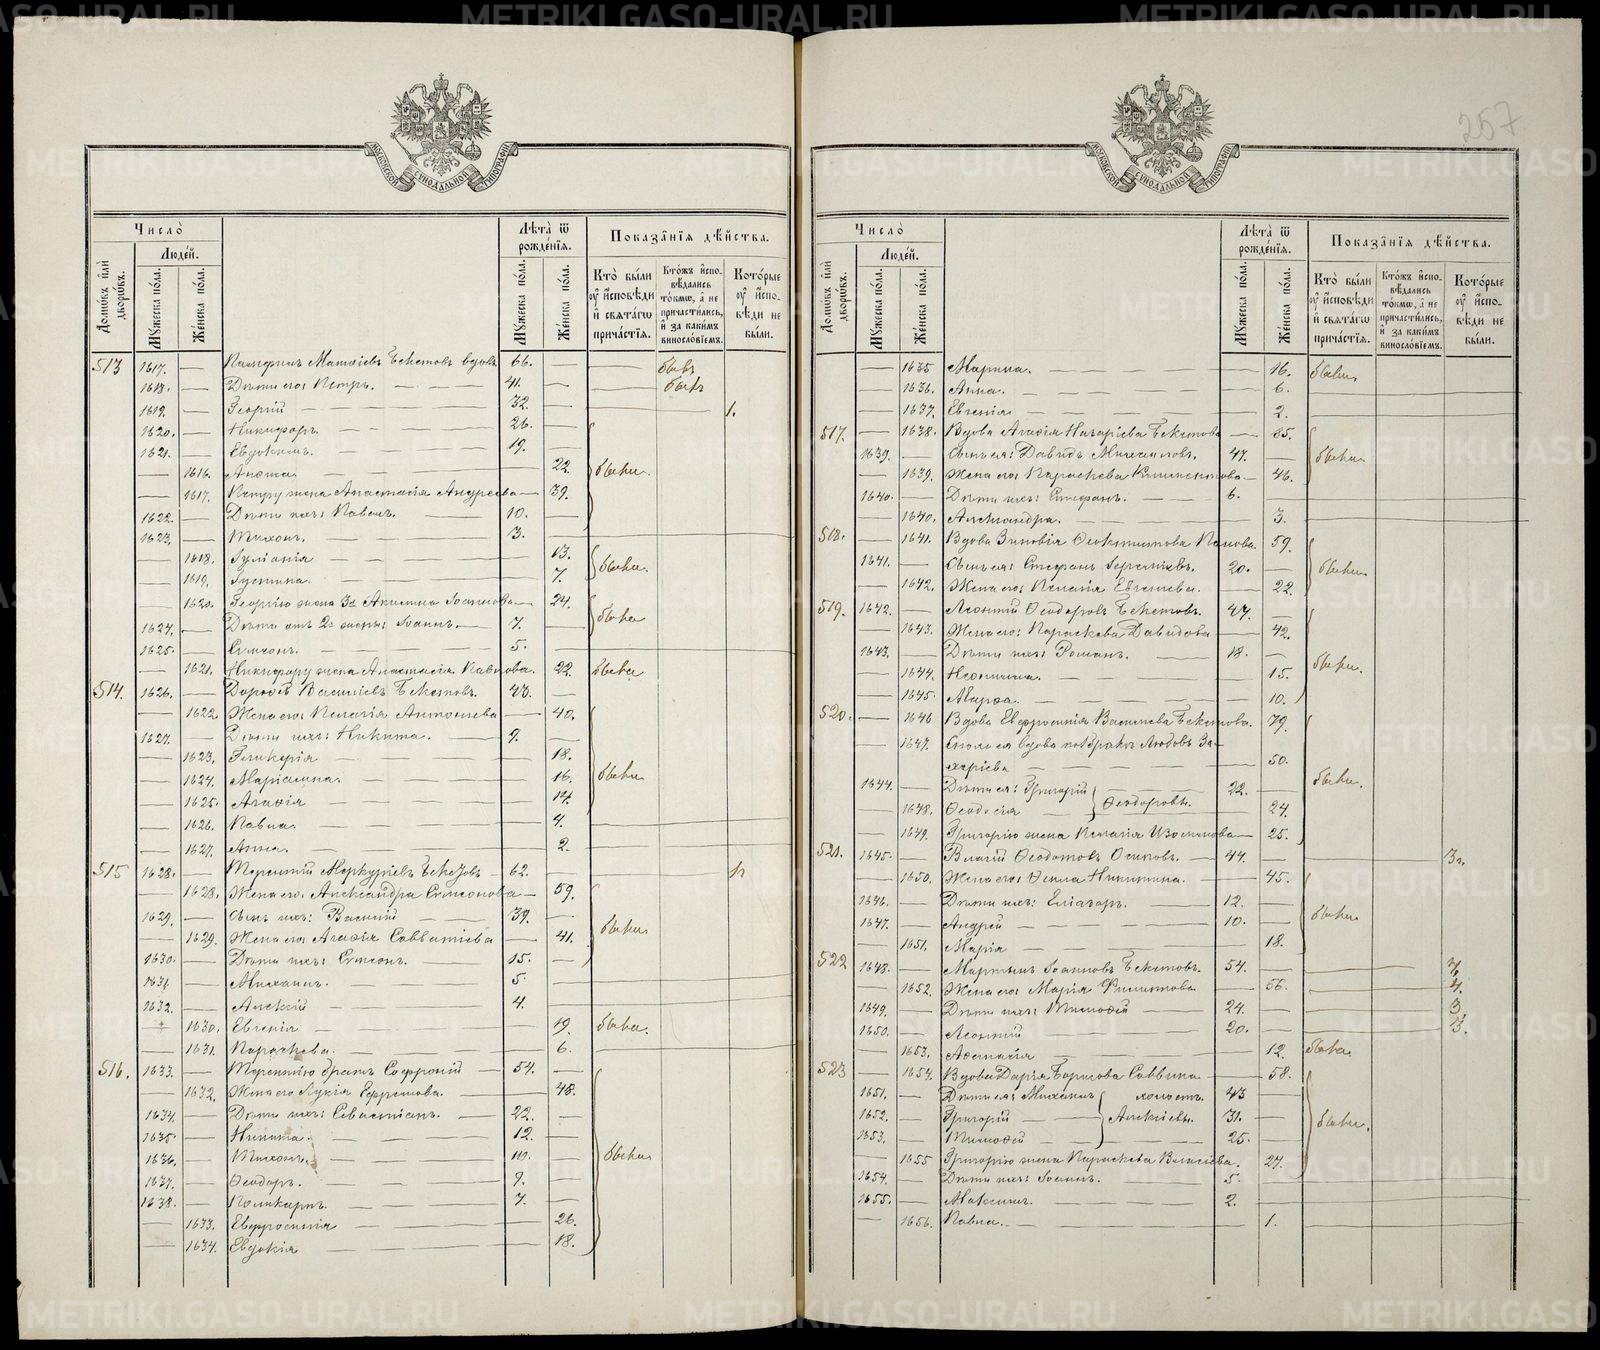 METRIKI.GASO-URAL.RU
257
МОСКОВСКОЙ СѴНОДАЛЬНОЙ ТИПОГРАФІИ
Число̀
Людей.
Домѡвъ и҆лѝ дворѡвъ.
Мꙋжеска по́ла.
Же́нска по́ла.
Лѣ́та ѿ рожде́нїѧ.
Мꙋжеска по́ла.
Же́нска по́ла.
Показа̑нїѧ дѣ́йства.
Кто̀ бы́ли ᲂу҆ и҆сповѣ́ди и҆ свѧта́гѡ прича́стїѧ.
Кто́жъ и҆спо-
вѣ́дались то́кмѡ, а҆ не причасти́лись, и҆ за каки́мъ винословїемъ.
Кото́рые ᲂу҆ и҆спо-
вѣ́ди не бы́ли.
513 1617. — Мат Бекетовъ вдовъ 66. — — былъ
1618. — Дѣти его: Петръ. — 41. — — былъ
1619. — Георгій — 32. — — 1.
1620. — Никифоръ. — 26. —
1621. — Евдокимъ. — 19. —
— 1616. — 22. были.
— 1617. Петру жена Анастасія Андреева — 39.
1622. — Дѣти ихъ: Павелъ. — 10. —
1623. — Тихонъ. — 3. —
— 1618. Іуліанія — 13.
— 1619. Іустина. — 7. были.
— 1620. Георгію жена 3я Акилина Іоаннова — 24.
1624. — Дѣти отъ 2й жены: Іоаннъ. — 7. — были
1625. — Симеонъ. — 5. —
— 1621. Никифору жена Анастасія Павлова. 22. была
514. 1626. — Дороѳей Василіевъ Бекетовъ. 43. —
— 1622 Жена его: Пелагія Антоніева — 40.
1627. — Дѣти ихъ: Никита. — 9. —
— 1623. Гликерія — 18.
— 1624. Маріамна. — 16. были
— 1625. Агаѳія — 14.
— 1626. Павла. — 4.
— 1627. Анна. — 2.
515 1628. — Терентій Меркуріевъ Бекетовъ — 62. —
— 1628. Жена его Александра Симеонова — 59.
1629. — Сынъ ихъ: Василій — 39. —
— 1629. Жена его Агаѳія Савватіева — 41. были
1630. — Дѣти ихъ: Симеонъ. — 15. —
1631 — Михаилъ. — 5. —
1632. — Алексій — 4. —
— 1630. Евгенія — 19. была.
— 1631. Параскева. — 6.
516. 1633. — Терентію братъ Софроній — 54. —
— 1632. Жена его Лукія Ефремова. — 48.
1634. — Дѣти ихъ: Севастіанъ. — 22. —
1635. — Никита. — 12. —
1636. — Тихонъ. — 10. — были
1637. — Ѳеодоръ. — 9. —
1638. — Поликарпъ. — 7. —
— 1633. Евфросинія — 26.
— 1634. Евдокія — 18.
Число̀
Людей.
Домѡвъ и҆лѝ дворѡвъ.
Мꙋжеска по́ла.
Же́нска по́ла.
Лѣ́та ѿ рожде́нїѧ.
Мꙋжеска по́ла.
Же́нска по́ла.
Показа̑нїѧ дѣ́йства.
Кто̀ бы́ли ᲂу҆ и҆сповѣ́ди и҆ свѧта́гѡ прича́стїѧ.
Кто́жъ и҆спо-
вѣ́дались то́кмѡ, а҆ не причасти́лись, и҆ за каки́мъ винословїемъ.
Кото́рые ᲂу҆ и҆спо-
вѣ́ди не бы́ли.
— 1635 Марина. — 16. были
— 1636. Анна. — 6.
— 1637. Евгенія — 2.
517. — 1638. Вдова Агаѳія Назаріева Бекетова — 85.
1639. — Сынъ ея: Давидъ Михаиловъ. 47. — были
— 1639. Жена его: Параскева Климентова — 46.
1640. — Дѣти ихъ: Стефанъ. — 6.
— 1640. Александра. — 3.
518. — 1641. Вдова Зиновія Ѳеоктистова Попова. 59.
1641. — Сынъ ея: Стефанъ 20. — были
— 1642. Жена его: Пелагія Евгеніева. — 22.
519. 1642. — Леонтій Ѳеодоровъ Бекетовъ. 47. —
— 1643. Жена его: Параскева Давидова — 42.
1643. — Дѣти ихъ: Романъ. — 18. —
— 1644. Неонила. — 15. были.
— 1645. Марѳа. — 10.
520. — 1646 Вдова Евфросинія Васильева Бекетова. 79.
— 1647. Сноха ея вдова Любовь За-
харіева — 50.
1644. — Дѣти ея: Григорій 22. — были.
— 1648. Ѳеодосія — Ѳеодоровы. 24.
— 1649. Григорію жена Пелагія — 25.
521. 1645. — Власій Ѳеодотовъ Осиповъ. — 44. — 3г.
— 1650. Жена его: Ѳекла Никитина. — 45.
1646. — Дѣти ихъ: Еліазаръ. — 12. —
1647. — Андрей — 10. — были
— 1651. Марія — 18.
522 1648. — Мартинъ Іоанновъ Бекетовъ. 54. — 4.
— 1652. Жена его: Марія Филиппова — 56. — 4.
1649. — Дѣти ихъ: Тимоѳей — 24. — 3.
1650. — Леонтій — 20. — 3.
— 1653. Аѳанасія — 12. была.
523 — 1654. Вдова Дарія Борисова Саввина — 58.
1651. — Дѣти ея: Михаилъ холостъ. 43 —
1652. — Григорій — Алексіевы. 31. — были.
1653. — Тимоѳей — 25. —
— 1655 Григорію жена Параскева Власіева. 27.
1654. — Дѣти ихъ: Іоаннъ. — 5. —
1655. — Максимъ. — 2. —
— 1656. Павла. — 1.